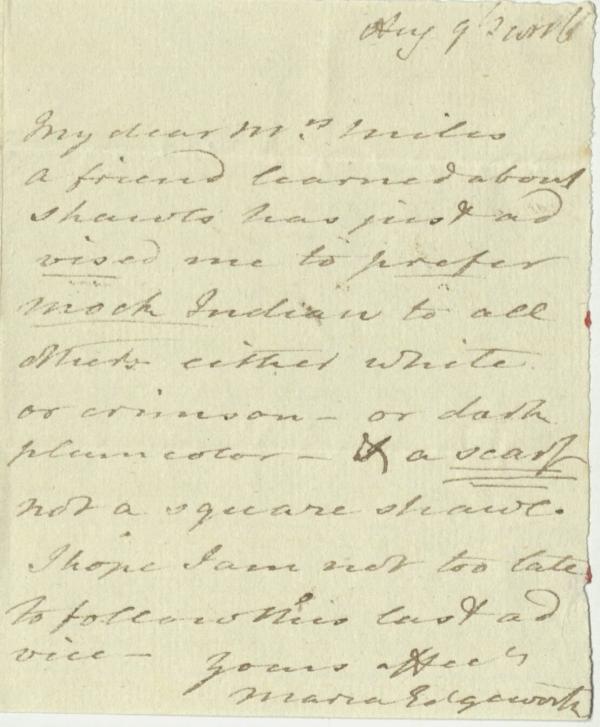 Aug 9th
My dear Mrs Miles
a friend learned about
shawls has just ad
vised me to prefer
mock Indian to all
others either white
or crimson – or dark
plum color – & a scarf
not a square shawl.
I hope I am not too late
to follow this last ad
vice – yours affecly
Maria Edgeworth